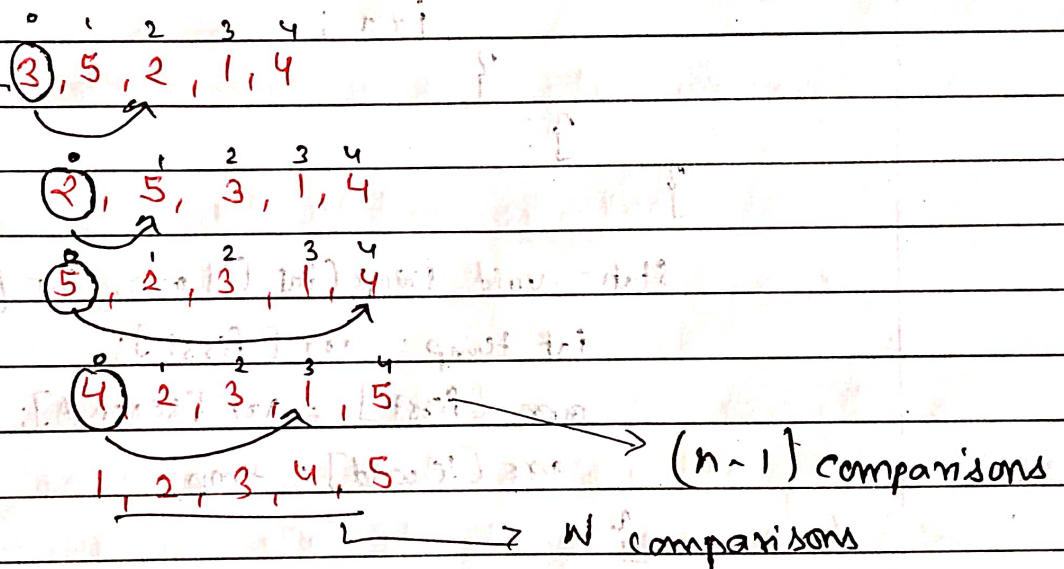 0 1 2 3 4
3, 5, 2, 1, 4
0 1 2 3 4
2, 5, 3, 1, 4
0 1 2 3 4
5, 2, 3, 1, 4
0 1 2 3 4
4 2, 3, 1, 5
(n-1) comparisons
1, 2, 3, 4, 5
N comparisons